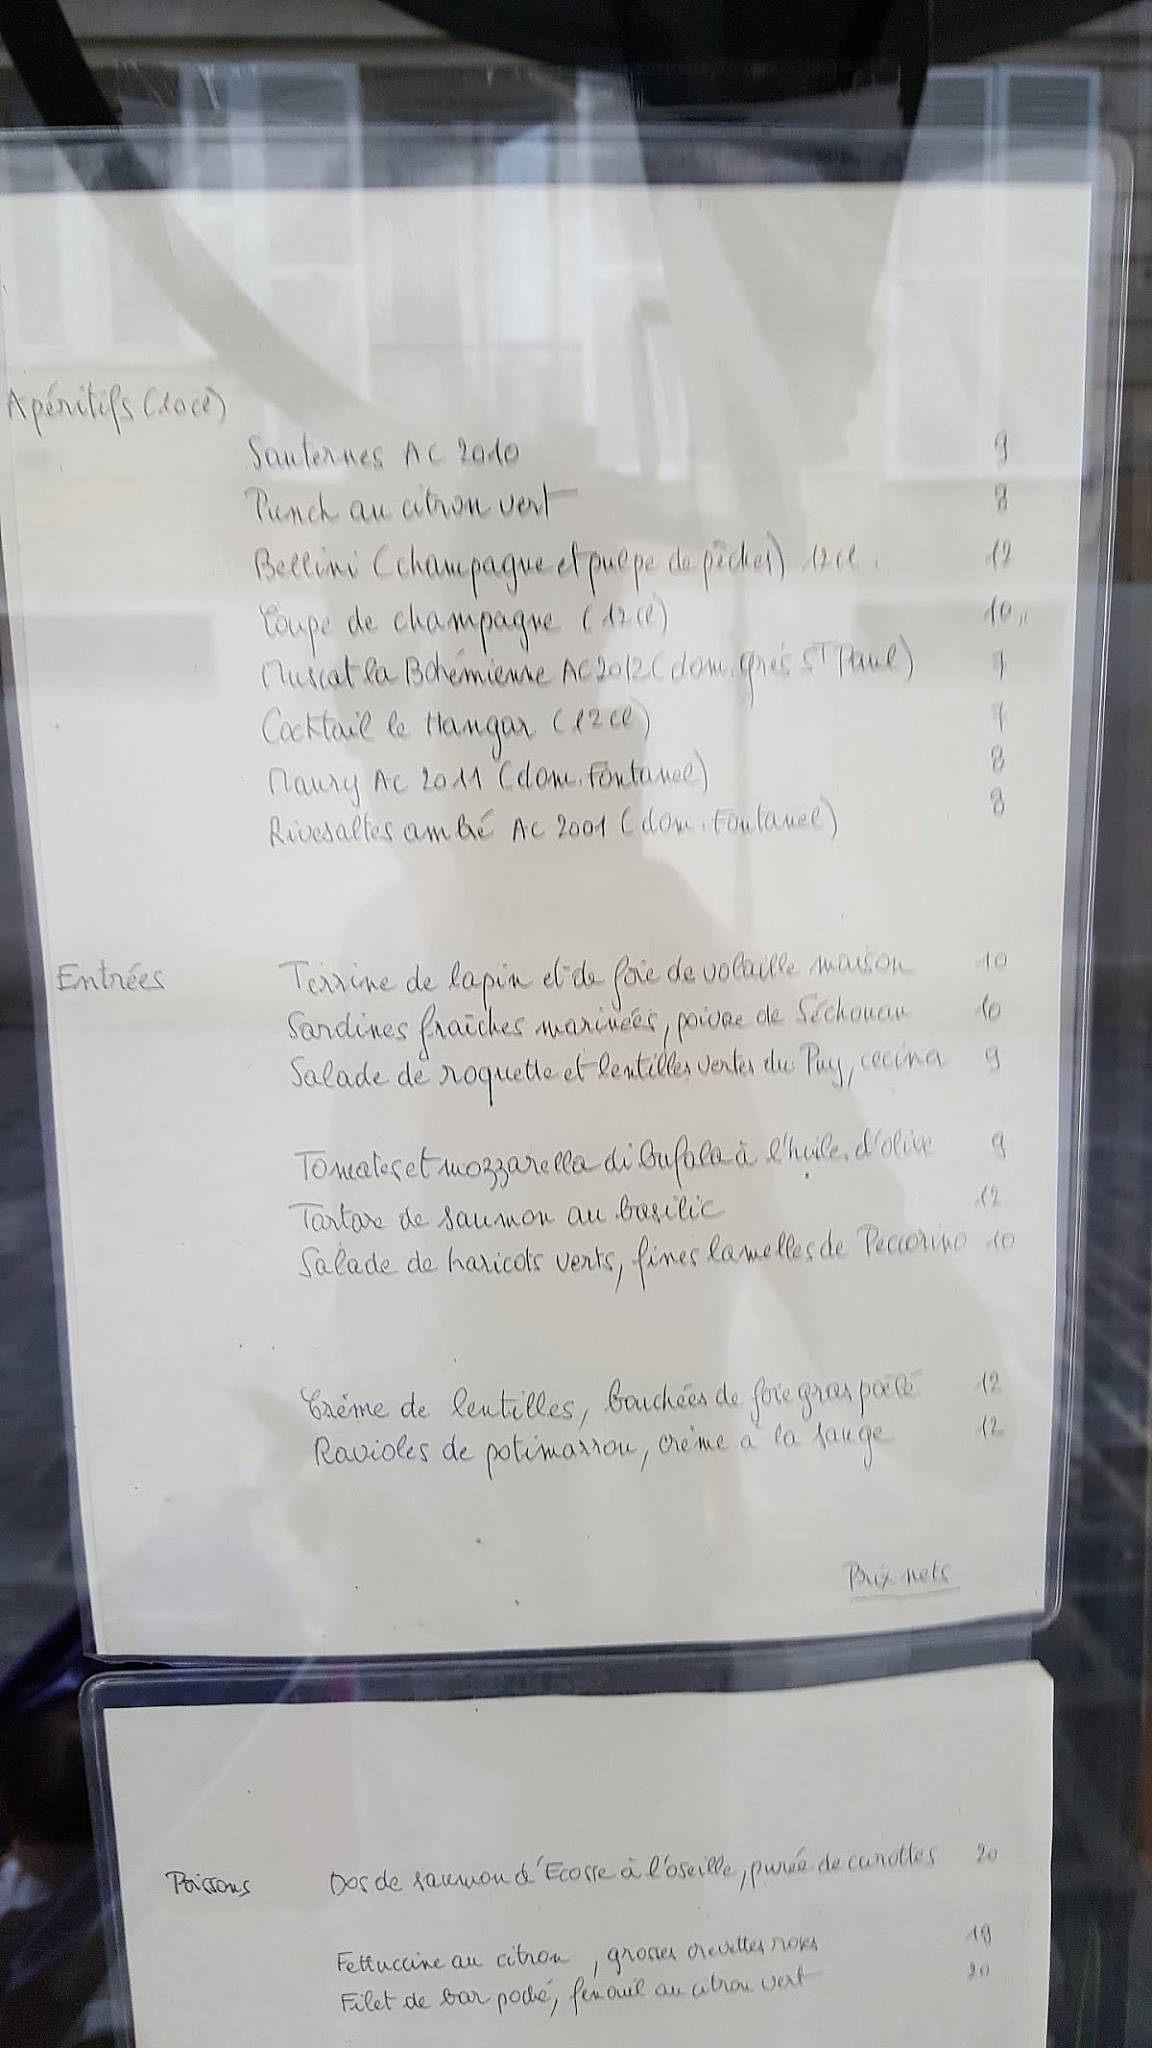 Apéritifs (10cl)
Sauternes AC 2010 9
Punch au citron vert 8
Bellini (champagne et pulpe de pêches) 12cl. 12
Coupe de champagne (12cl) 10,,
Muscat la Bohémienne AC 2012 (dom. grès St Paul) 7
Cocktail le Hangar (12cl) 7
Maury AC 2011 (dom. Fontanel) 8
Rivesaltes ambré AC 2001 (dom. Fontanel) 8
Entrées Terrine de lapin et de foie de volaille maison 10
Sardines fraîches marinées, poivre de Séchouan 10
Salade de roquette et lentilles vertes du Puy, cecina 9
Tomates et mozzarella di bufala à l'huile d'olive 9
Tartare de saumon au basilic 12
Salade de haricots verts, fines lamelles de Peccorino 10
Crème de lentilles, bouchées de foie gras poêlé 12
Ravioles de potimarron, crème à la sauge 12
Prix nets
Poissons Dos de saumon d'Ecosse à l'oseille, purée de carottes 20
Fettuccine au citron, grosses crevettes roses 19
Filet de bar poché, fenouil au citron vert 20